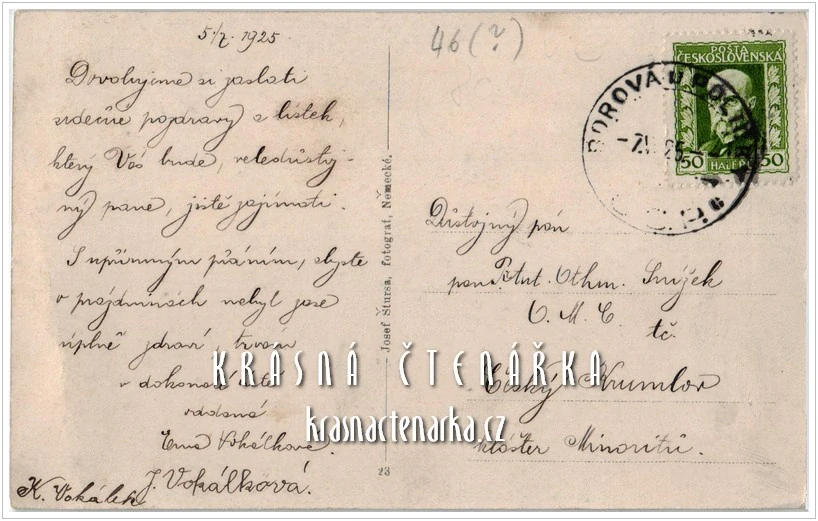 5./7. 1925
46 (?)
Dovolujeme si zaslati
srdečné pozdravy s lístek,
který Vás bude, veledůstoj-
ný pane, jistě zajímati.
S upřímným přáním, abyste
o prázdninách nabyl zase
úplně zdraví, trvám
v dokonalé úctě
oddaná
Ema Vokálková
J. Vokálková.
K. Vokálek
Josef Štursa, fotograf, Německé.
23
POŠTA
ČESKOSLOVENSKÁ
50 HALÉŘŮ 50
BOROVÁ u POLIČKY
-7.VII.25-
Důstojný pán
pan Othm.
O. M. C.
tč.
Český Krumlov
klášter Minoritů.
KRÁSNÁ ČTENÁŘKA
krasnactenarka.cz